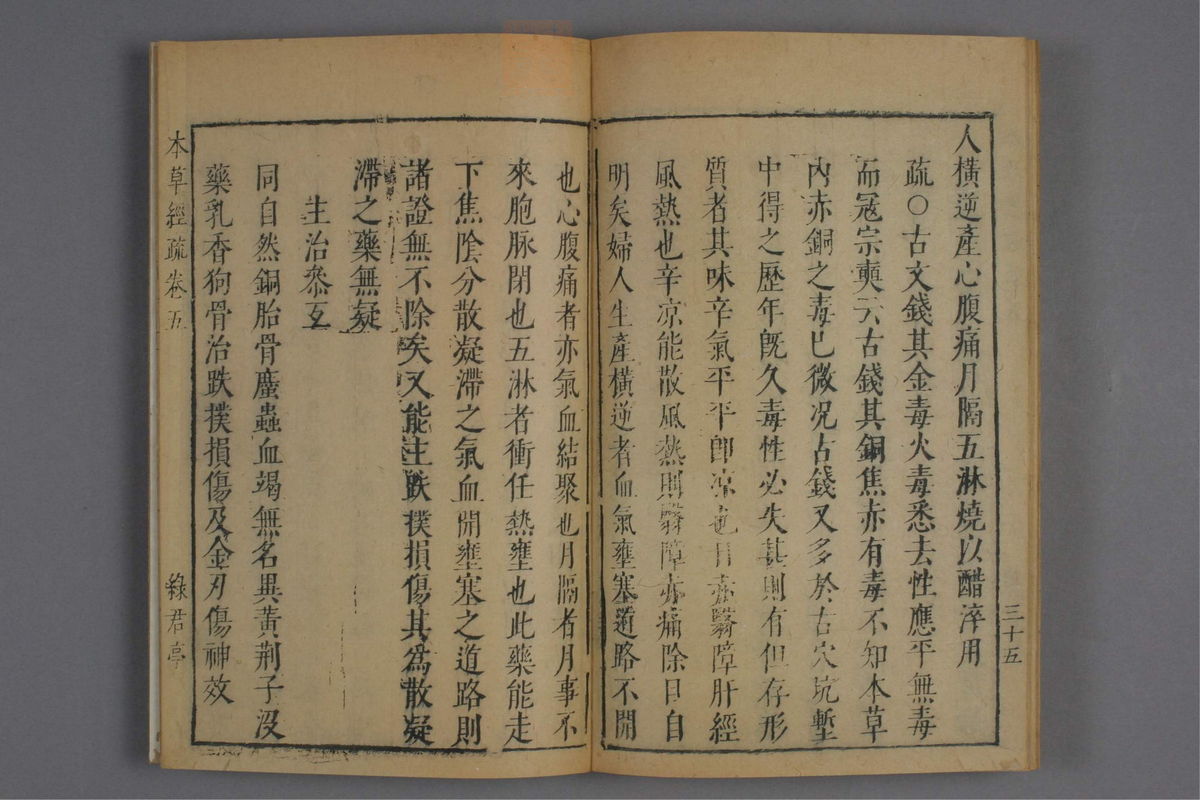 人橫逆產心腹痛月隔五淋燒以醋淬用
疏○古文錢其金毒火毒悉去性應平無毒
而冦宗奭云古錢其銅焦赤有毒不知本草
內赤銅之毒已微况古錢又多於古穴坑塹
中得之歷年旣久毒性必失甚則有但存形
質者其味辛氣平平卽凉也目赤翳障肝經
風熱也辛凉能散風熱則翳障赤痛除日自
明矣婦人生產橫逆者血氣壅塞道路不開
三十五
也心腹痛者亦氣血結聚也月隔者月事不
來胞脉閉也五淋者衝任熱壅也此藥能走
下焦陰分散凝滯之氣血開壅塞之道路則
諸證無不除矣又能主跌撲損傷其爲散凝
滯之藥無疑
主治叅互
同自然銅胎骨䗪蟲血竭無名異黃荆子沒
藥乳香狗骨治跌撲損傷及金刃傷神效
本草經疏卷五
綠君亭